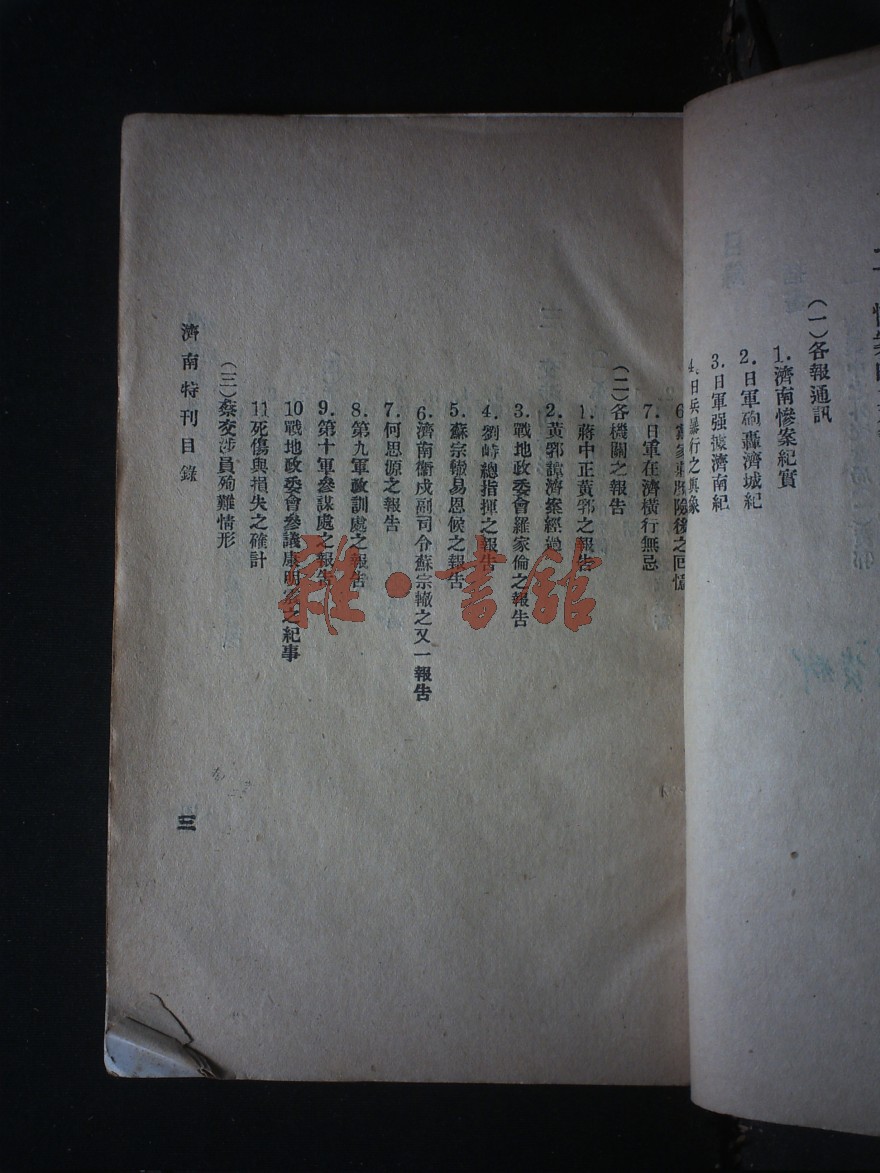 (一)各報通訊
1.濟南慘案紀實
2.日軍砲轟濟城紀
3.日軍强據濟南紀
4.日兵暴行之眞象
後之回憶
7.日軍在濟橫行無忌
(二)各機關之報告
1.蔣中正黃郛之報告
2.黃郛談濟案經過
3.戰地政委會羅家倫之報告
4.劉峙總指揮之報告
5.蘇宗轍易恩候之報告
6.濟南衞戍副司令蘇宗轍之又一報告
7.何思源之報告
8.第九軍政訓處之報告
9.第十軍參謀處之報告
10戰地政委會參議康明震之紀事
11死傷與損失之確計
(三)蔡交涉員殉難情形
濟南特刊目錄
三
雜·書館